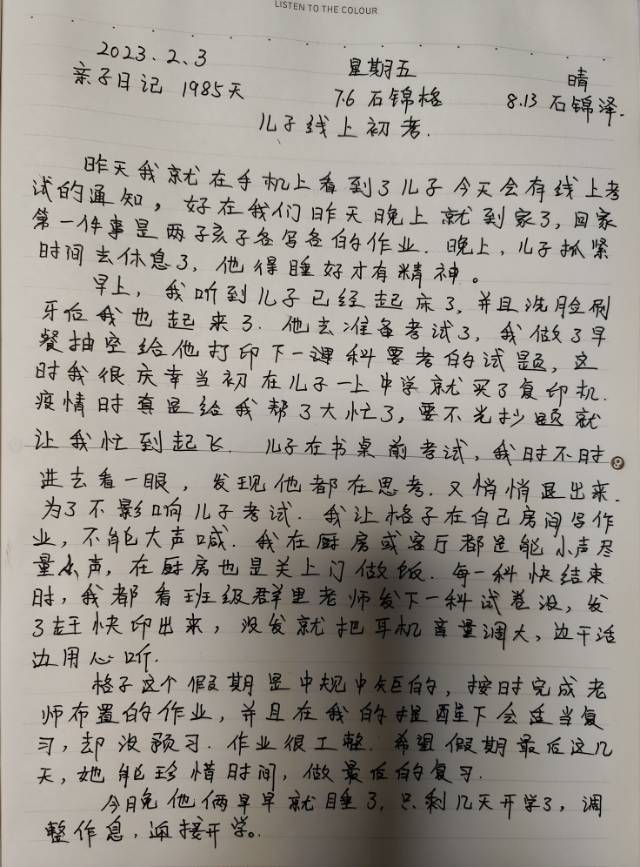 LISTEN TO THE COLOUR
2023.2.3 星期五 晴
亲子日记 1985天 7.6 石锦格 8.13 石锦泽.
儿子线上初考.
昨天我就在手机上看到了儿子今天会有线上考
试的通知，好在我们昨天晚上就到家了，回家
第一件事是两子孩子各写各的作业.晚上，儿子抓紧
时间去休息了，他得睡好才有精神。
早上，我听到儿子已经起床了，并且洗脸刷
牙后我也起来了.他去准备考试了，我做了早
餐抽空给他打印下一课科要考的试题，这
时我很庆幸当初在儿子一上中学就买了复印机.
疫情时真是给我帮了大忙了，要不光抄题就
让我忙到起飞.儿子在书桌前考试，我时不时
进去看一眼，发现他都在思考.又悄悄退出来.
为了不影响儿子考试.我让格子在自己房间写作
业，不能大声喊.我在厨房或客厅都是能小声尽
量小声，在厨房也是关上门做饭.每一科快结束
时，我都看班级群里老师发下一科试卷没，发
了赶快印出来，没发就把耳机音量调大，边干活
边用心听.
格子这个假期是中规中矩的，按时完成老
师布置的作业，并且在我的提醒下会适当复
习，却没预习.作业很工整.希望假期最后这几
天，她能珍惜时间，做最后的复习.
今晚他俩早早就睡了，只剩几天开学了，调
整作息，迎接开学。